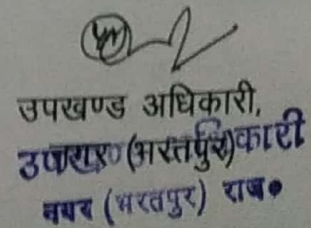 उपखण्ड अधिकारी,
(भरतपुर)कारी
नगर (भरतपुर) राज०